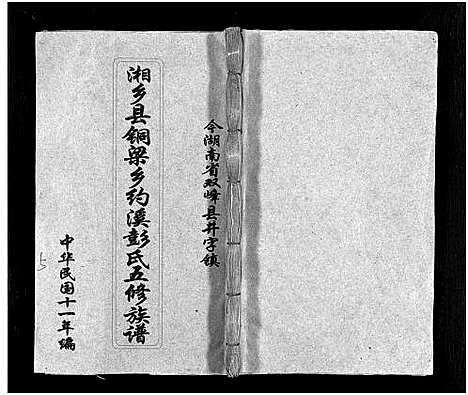 今湖南省双峰县井字镇
湘乡县铜梁乡约溪彭氏五修族谱
中华民国十一年编